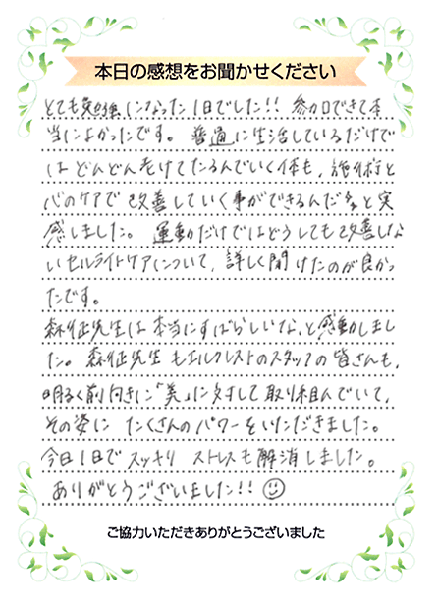 本日の感想をお聞かせください
とても勉強になった1日でした!! 参加できて本
当によかったです。普通に生活しているだけで
はどんどん老けてたるんでいく体も、施術と
心のケアで改善していく事ができるんだなと実
感しました。運動だけではどうしても改善しな
いセルライトケアについて、詳しく聞けたのが良かっ
たです。
森柾先生は本当にすばらしいな、と感動しまし
た。森柾先生もエルクレストのスタッフの皆さんも、
明るく前向きに「美」に対して取り組んでいて、
その姿にたくさんのパワーをいただきました。
今日1日でスッキリ ストレスも解消しました。
ありがとうございました!!
ご協力いただきありがとうございました